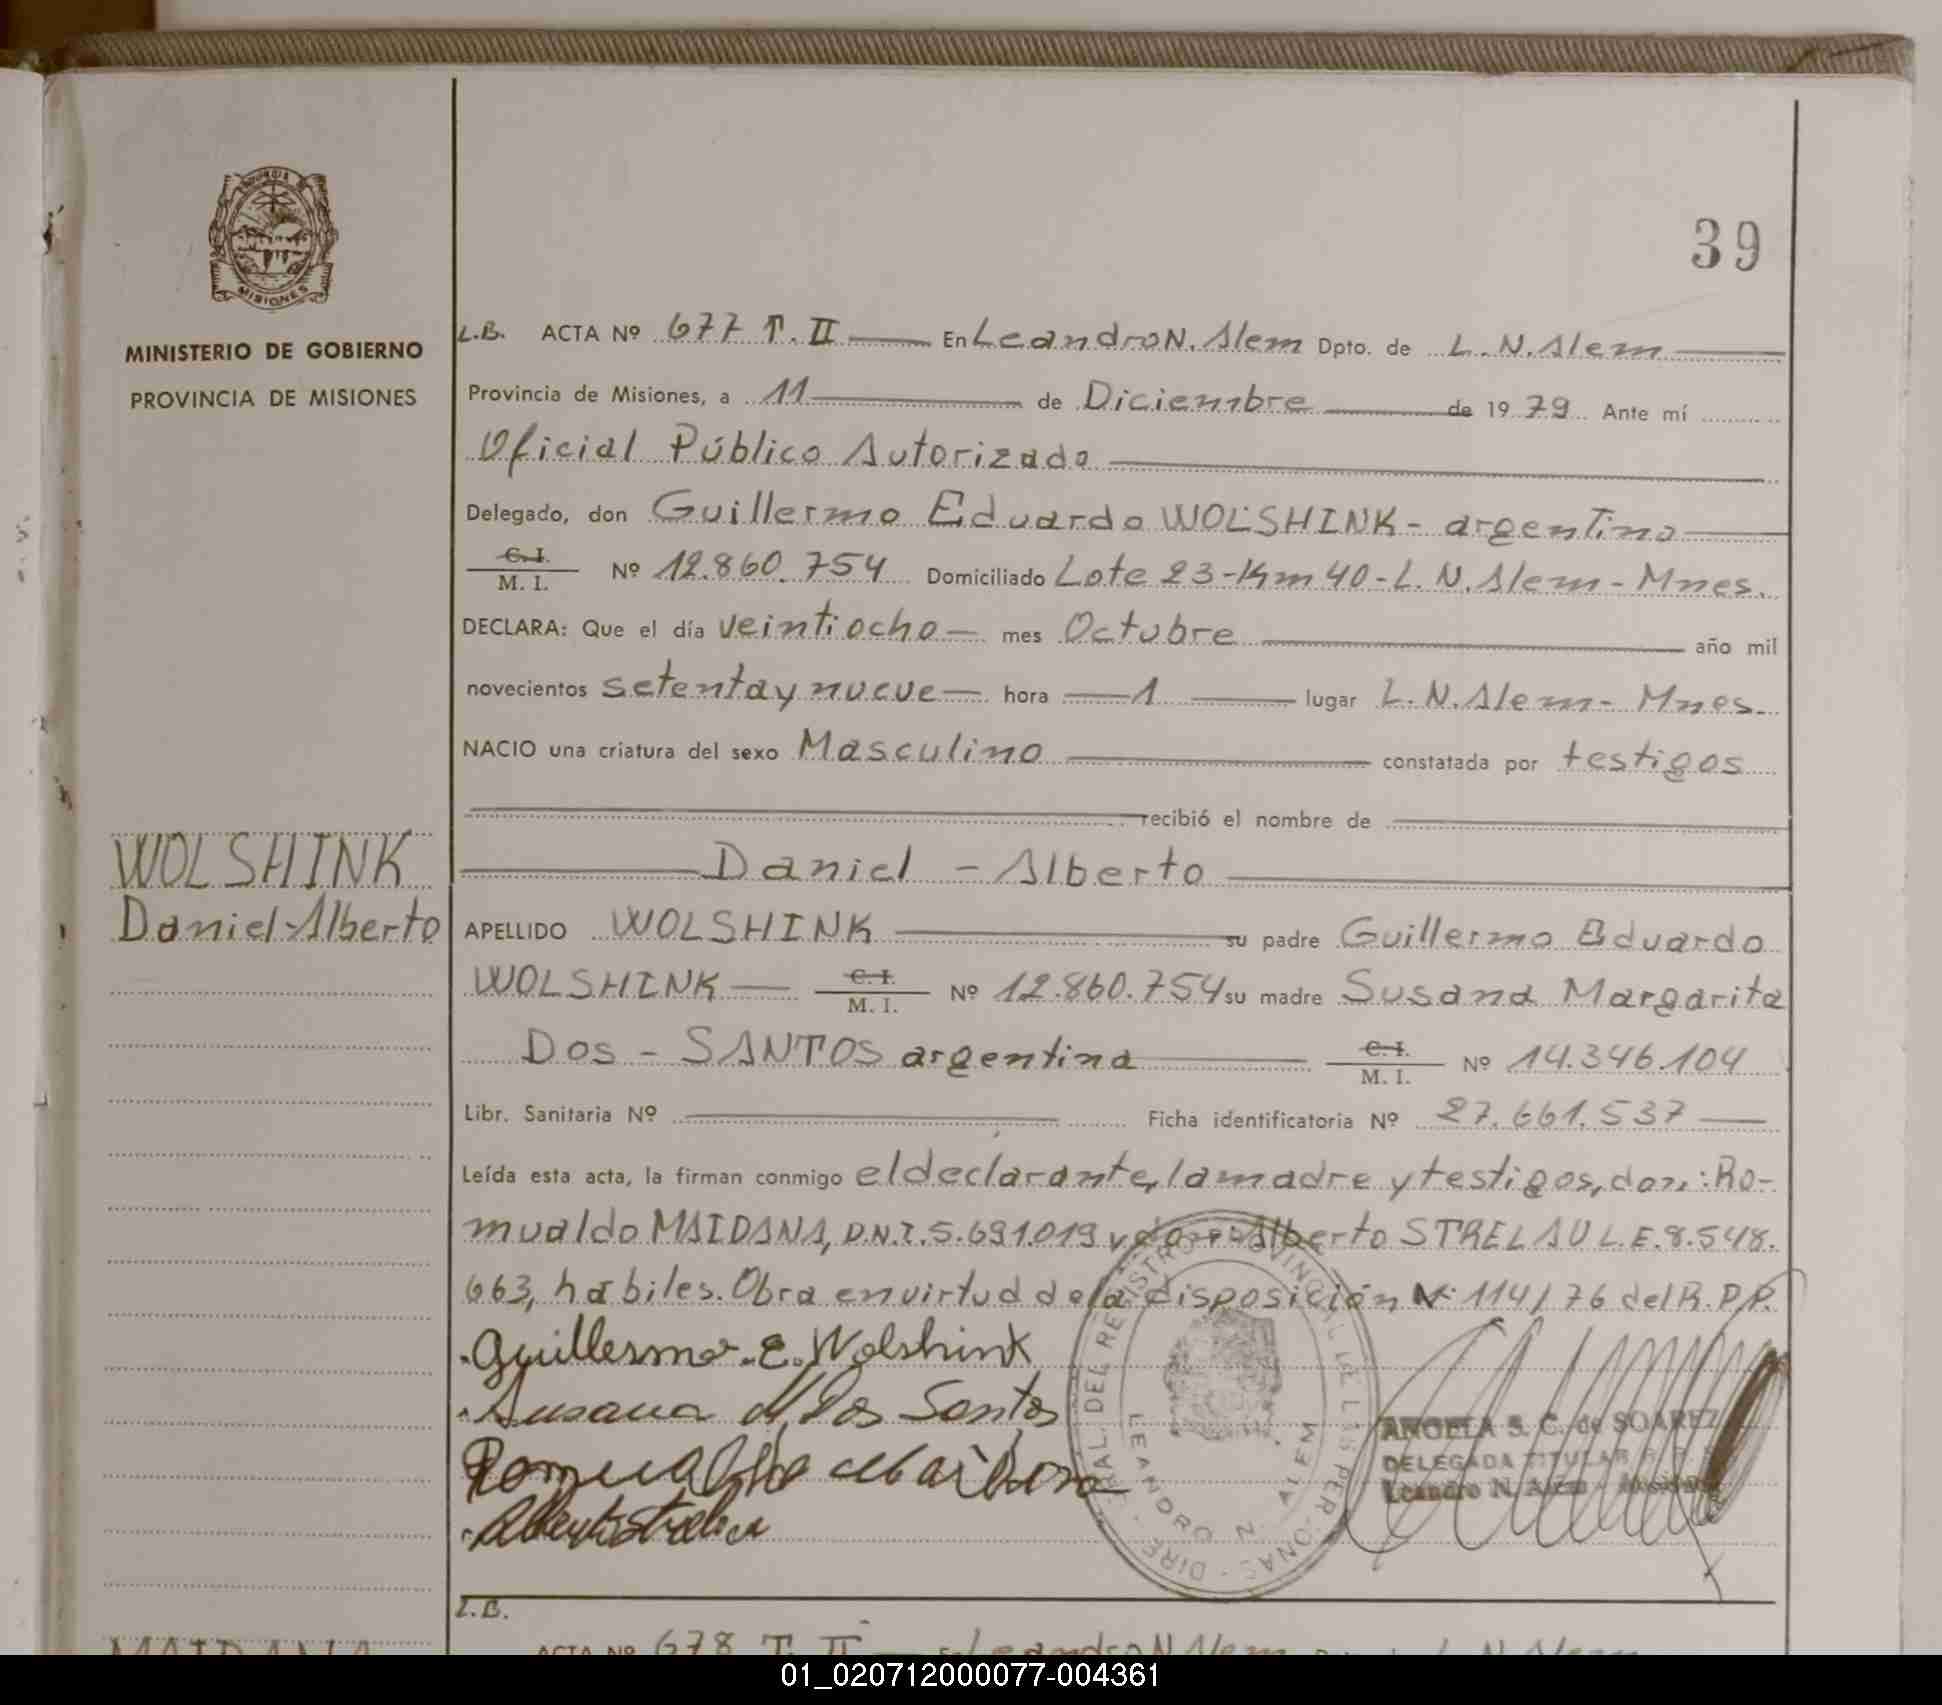 39
PROVINCIA DE
MISIONES
MINISTERIO DE GOBIERNO
PROVINCIA DE MISIONES
L.B. ACTA Nº 677 T. II En Leandro N. Alem Dpto. de L. N. Alem
Provincia de Misiones, a 11 de Diciembre de 1979 Ante mí
Oficial Público Autorizado
Delegado, don Guillermo Eduardo WOLSHINK - argentino
C.I. M. I. Nº 12.860.754 Domiciliado Lote 23-Km 40-L. N. Alem - Mnes.
DECLARA: Que el día veintiocho mes Octubre año mil
novecientos setenta y nueve hora 1 lugar L. N. Alem - Mnes.
NACIO una criatura del sexo Masculino constatada por testigos
recibió el nombre de
Daniel - Alberto
WOLSHINK
Daniel-Alberto
APELLIDO WOLSHINK su padre Guillermo Eduardo
WOLSHINK C.I. M. I. Nº 12.860.754 su madre Susana Margarita
Dos - SANTOS argentina C.I. M. I. Nº 14.346.104
Libr. Sanitaria Nº Ficha identificatoria Nº 27.661.537
Leída esta acta, la firman conmigo el declarante, la madre y testigos, don: Ro-
mualdo MAIDANA, D.N.I. 5.691.019 y don: Alberto STRELAU L.E. 8.548.
663, habiles. Obra en virtud de la disposición Nº 114/76 del R.P.P.
Guillermo E. Wolshink
Susana M. Dos Santos
Romualdo Maidana
Alberto Strelau
LEANDRO N. ALEM
ANGELA S. C. de SOAREZ
DELEGADA TITULAR
Leandro N. Alem - Misiones
L.B.
MAIDANA
ACTA Nº 678 T. II En Leandro N. Alem L. N. Alem
01_020712000077-004361